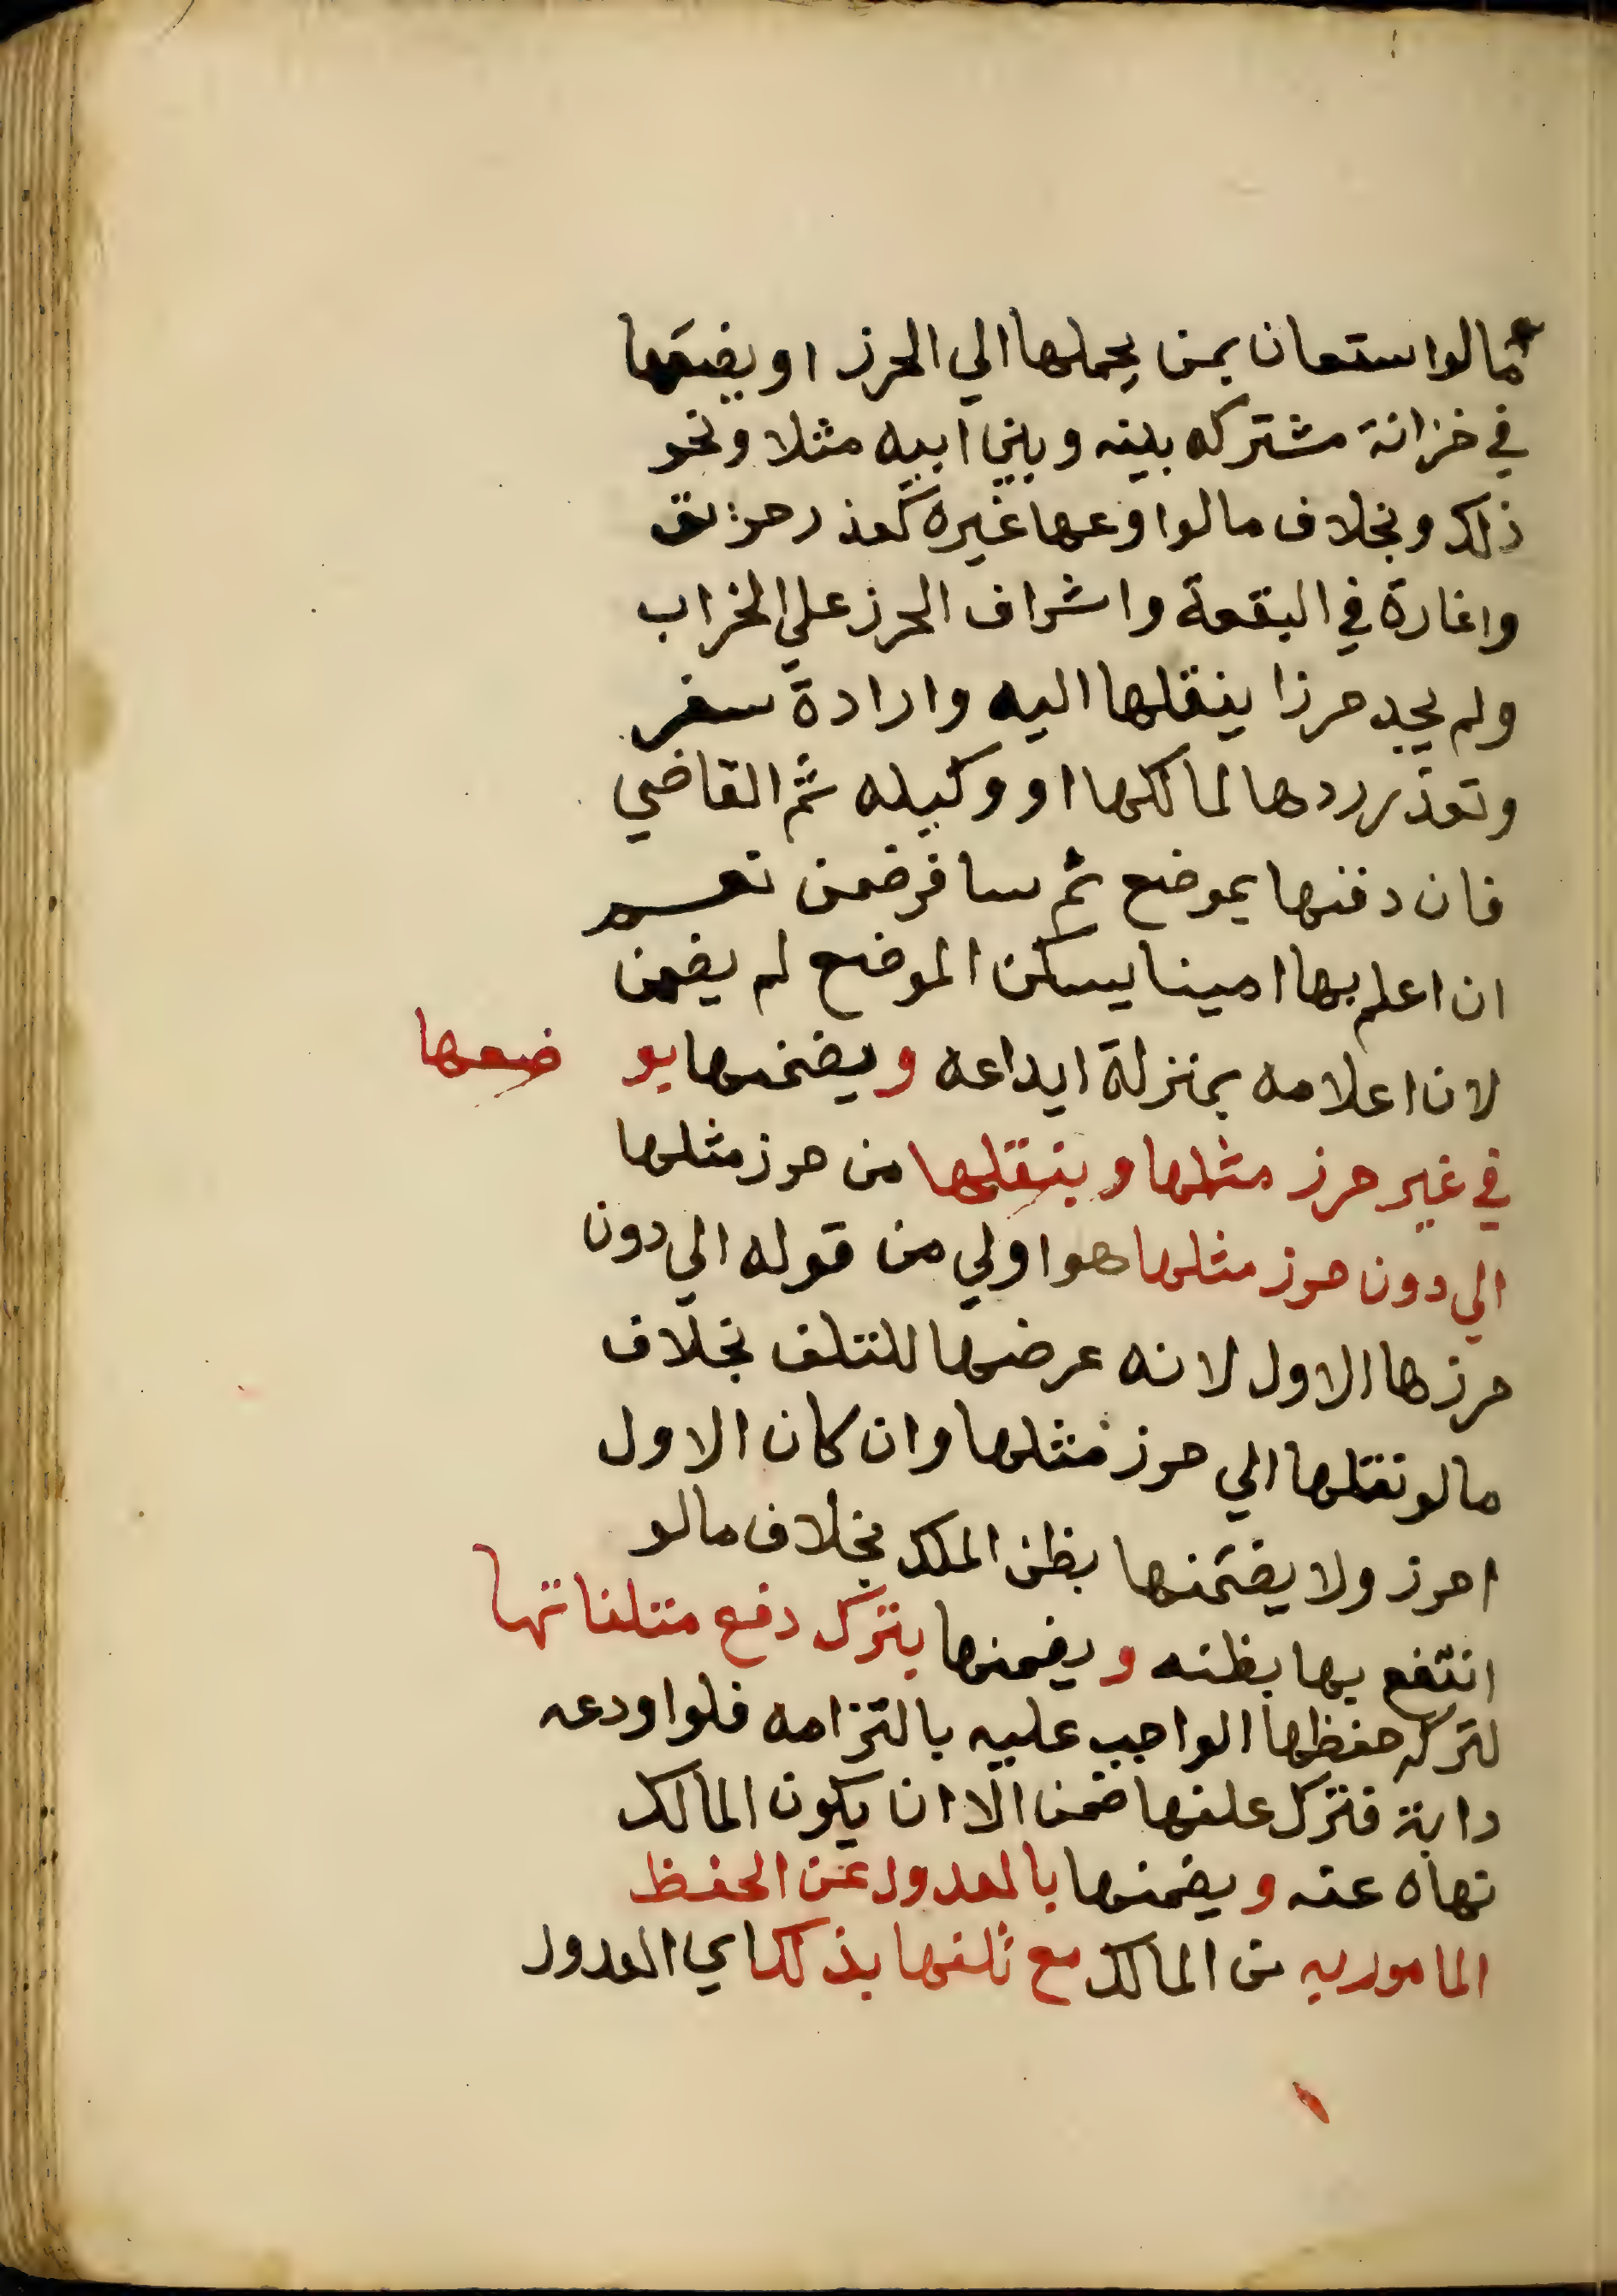 مالو استعان بمن يحملها الي الحرز او يضعها
في خزانة مشتركه بينه وبين ابيه مثلا ونحو
ذلك وبخلاف مالو اودعها غيره كعذر حريق
واغارة في البقعة واشراف الحرز علي الخراب
ولم يجد حرزا ينقلها اليه وارادة سفر
وتعذر ردها لمالكها او وكيله ثم القاضي
فان دفنها بموضع ثم سافر ضمن نعم
ان اعلم بها امينا يسكن الموضع لم يضمن
لان اعلامه بمنزلة ايداعه ويضمنها بو ضعها
في غير حرز مثلها وبنقلها من حرز مثلها
الي دون حرز مثلها هو اولي من قوله الي دون
حرزها الاول لانه عرضها للتلف بخلاف
مالو نقلها الي حرز مثلها وان كان الاول
احرز ولا يضمنها بظن الملك بخلاف مالو
انتفع بها بظنه ويضمنها بترك دفع متلفاتها
لتركه حفظها الواجب عليه بالتزامه فلو اودعه
دابة فترك علفها ضمن الا ان يكون المالك
نهاه عنه ويضمنها بالعدول عن الحفظ
المامور به من المالك مع تلفها بذلك اي العدول